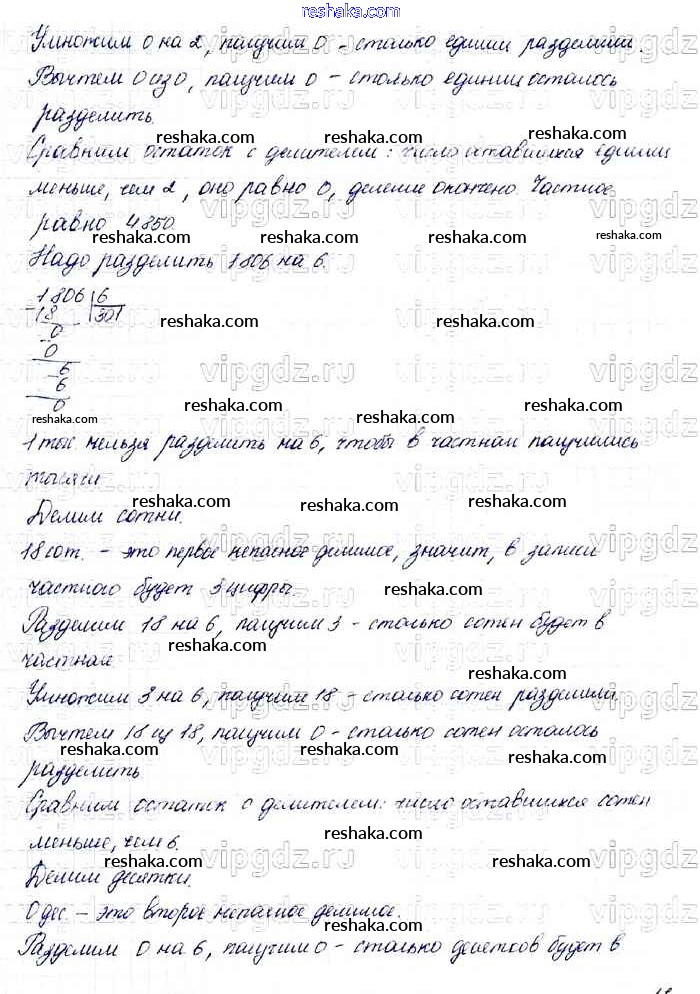 reshaka.com
Умножим 0 на 2, получим 0 – столько единиц разделили.
Вычтем 0 из 0, получим 0 – столько единиц осталось
разделить.
reshaka.com reshaka.com
Сравним остаток с делителем: число оставшихся единиц
меньше, чем 2, оно равно 0, деление окончено. Частное
равно 4850.
reshaka.com reshaka.com reshaka.com
Надо разделить 1806 на 6.
1806 6
18 301
reshaka.com reshaka.com
0
0
6
6
0
reshaka.com reshaka.com reshaka.com
1 тыс. нельзя разделить на 6, чтобы в частном получились
тысячи
reshaka.com reshaka.com
Делим сотни.
18 сот. – это первое неполное делимое, значит, в записи
частного будет 3 цифры.
reshaka.com
Разделим 18 на 6, получим 3 – столько сотен будет в
частном.
reshaka.com reshaka.com
Умножим 3 на 6, получим 18 – столько сотен разделили.
Вычтем 18 из 18, получим 0 – столько сотен осталось
reshaka.com reshaka.com
разделить
Сравним остаток с делителем: число оставшихся сотен
меньше, чем 6.
reshaka.com
reshaka.com reshaka.com
Делим десятки.
0 дес – это второе неполное делимое.
reshaka.com
Разделим 0 на 6, получим 0 – столько десятков будет в
vipgdz.ru